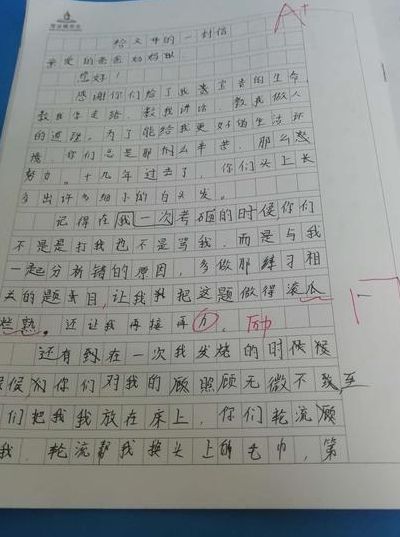 A+
给父母的一封信
亲爱的爸爸妈妈:
您好!
感谢你们给了我宝贵的生命,
教我学走路,教我讲话,教我做人
的道理。为了能给我更好的生活环
境,你们总是那么辛苦,那么努
努力。十几年过去了,你们头上长
多出许多细小的白头发。
记得在我一次考砸的时候你们
不是是打我也不是骂我,而是与我
一起分析错的原因,多做那练习相
关的题目,让我把这题做得滚瓜
烂熟。还让我再接再力,厉
还有到在一次我发烧的时候候
候候你们对我的顾照顾无微不致至
们把我我放在床上,你们轮流顾
我,轮流帮我换头上的毛巾,第